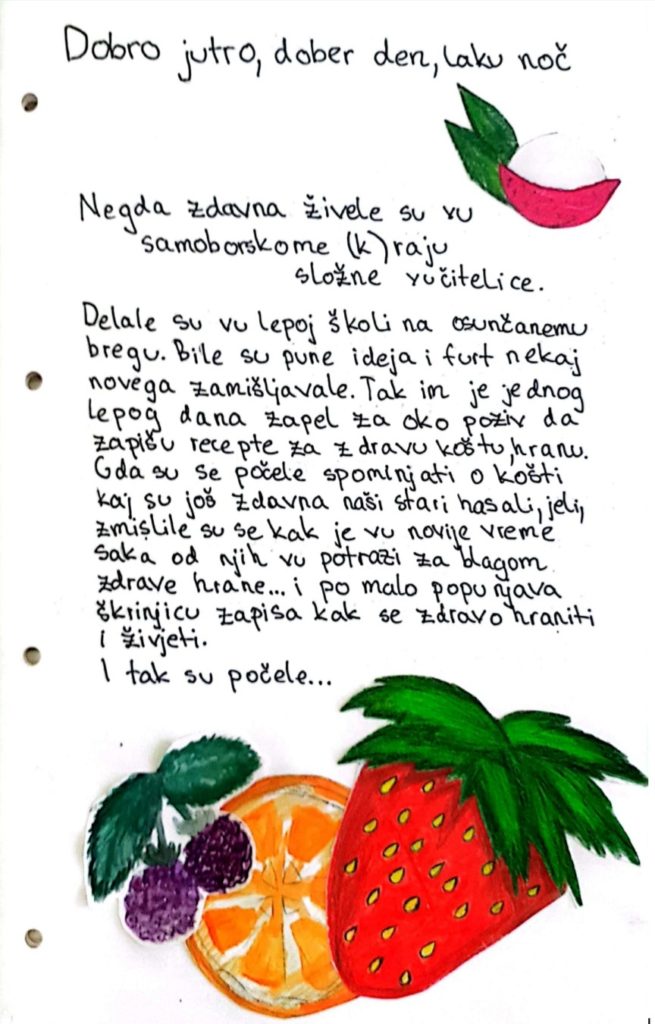 Dobro jutro, dober den, laku noč
Negda zdavna živele su vu
samoborskome (k)raju
složne vučitelice.
Delale su vu lepoj školi na osunčanemu
bregu. Bile su pune ideja i furt nekaj
novega zamišljavale. Tak im je jednog
lepog dana zapel za oko poziv da
zapišu recepte za zdravu koštu, hranu.
Gda su se počele spominjati o košti
kaj su još zdavna naši stari hasali, jeli,
zmislile su se kak je vu novije vreme
saka od njih vu potrazi za blagom
zdrave hrane... i po malo popunjava
škrinjicu zapisa kak se zdravo hraniti
i živjeti.
I tak su počele...